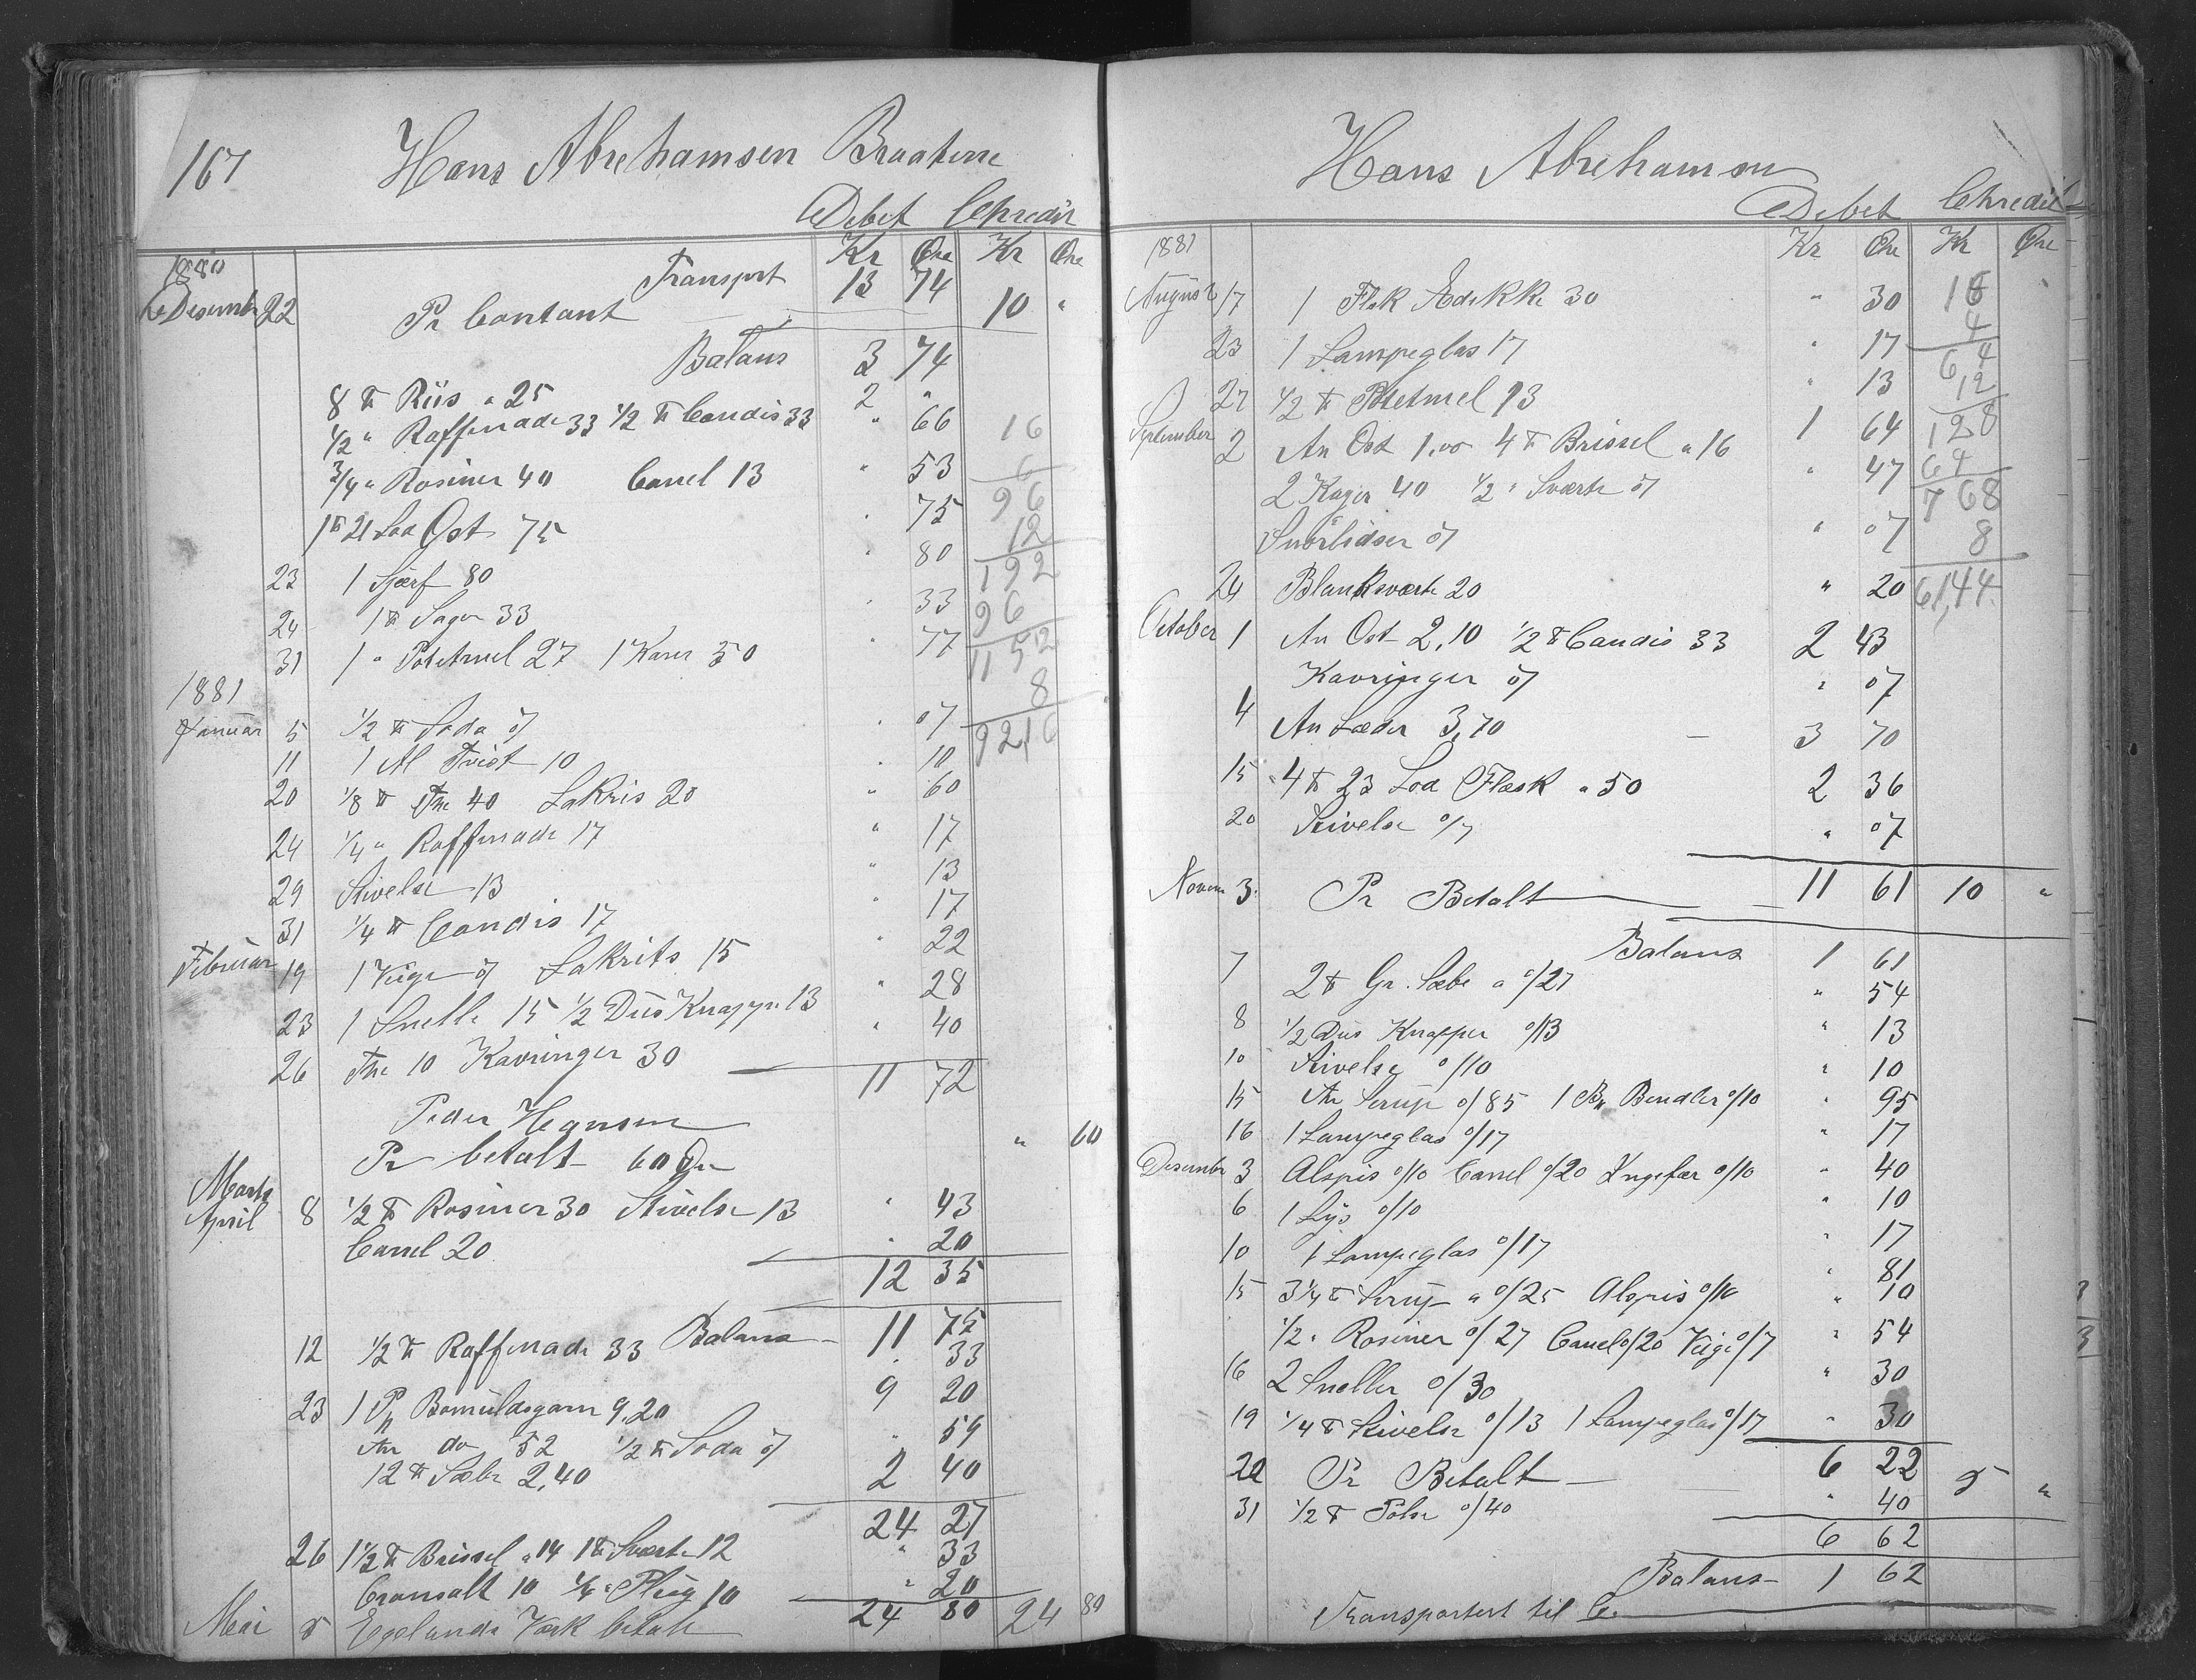 167
Hans Abrehamsen Braatene
Debet Chredit
Kr Øre Kr Øre
1880
Transport 13 74
Desember 22 Pr Contant 10 "
Balans 3 74
8 ℔ Riis a 25 2 "
1/2 " Raffinade 33 1/2 ℔ Candis 33 " 66
3/4 " Rosiner 40 Canel 13 " 53
1 ℔ 21 Lod Ost 75 " 75
23 1 Sjærf 80 " 80
24 1 ℔ Sagen 33 " 33
31 1 " Potetmel 27 1 Kurv 50 " 77
16
6
96
12
192
96
1152
8
9216
1881
Januar 5 1/2 ℔ Soda 07 " 07
11 1 Al Tvist 10 " 10
20 1/8 ℔ The 40 Lakris 20 " 60
24 1/4 " Raffinade 17 " 17
29 Stivelse 13 " 13
31 1/4 ℔ Candis 17 " 17
Februar 19 1 Væge 07 Lakrits 15 " 22
23 1 Snelle 15 1/2 Dus Knapper 13 " 28
26 The 10 Kavringer 30 " 40
11 72
Peder Hansen
Pr betalt 60 Øre " 60
Marts
April 8 1/2 ℔ Rosiner 30 Stivelse 13 " 43
Canel 20 " 20
12 35
Balans 11 75
12 1/2 ℔ Raffinade 33 " 33
23 1 Pk Bomuldsgarn 9,20 9 20
An do 52 1/2 ℔ Soda 07 " 59
12 ℔ Sæbe 2,40 2 40
24 27
26 1 1/2 ℔ Brissel a 14 1 ℔ Sværte 12 " 33
Cromsalt 10 Plug 10 " 20
24 80
Mai 5 Egelands Værk betalt 24 80
Hans Abrehamsen
Debet Chredit
Kr Øre Kr Øre
1881
August 17 1 Flsk Ædikke 30 " 30
23 1 Lampeglas 17 " 17
27 1/2 ℔ Potetmel 13 " 13
September 2 An Ost 1,00 4 ℔ Brissel a 16 1 64
2 Kager 40 1/2 " Sværte 07 " 47
Snörlidser 07 " 07
24 Blanksværte 20 " 20
16
4
64
12
128
64
768
8
61,44
October 1 An Ost 2,10 1/2 ℔ Candis 33 2 43
Kavringer 07 " 07
4 An Læder 3,70 3 70
15 4 ℔ 23 Lod Flæsk a 50 2 36
20 Stivelse 0/7 " 07
Novem 3 Pr Betalt 11 61 10 "
Balans 1 61
7 2 ℔ Gr. Sæbe a 0/27 " 54
8 1/2 Dus Knapper 0/13 " 13
10 Stivelse 0/10 " 10
15 An Sirup 0/85 1 Bk Bendler 0/10 " 95
16 1 Lampeglas 0/17 " 17
Desember 3 Alspis 0/10 Canel 0/20 Ingefær 0/10 " 40
6 1 Lys 0/10 " 10
10 1 Lampeglas 0/17 " 17
15 3 1/4 ℔ Sirup a 0/25 Alspis 0/10 " 81
" 10
1/2 " Rosiner 0/27 Canel 0/20 Væge 0/7 " 54
16 2 Sneller 0/30 " 30
19 1/4 ℔ Stivelse 0/13 1 Lampeglas 0/17 " 30
22 Pr Betalt 6 22 5 "
31 1/2 ℔ Pølse 0/40 " 40
6 62
Balans 1 62
Transportert til C.